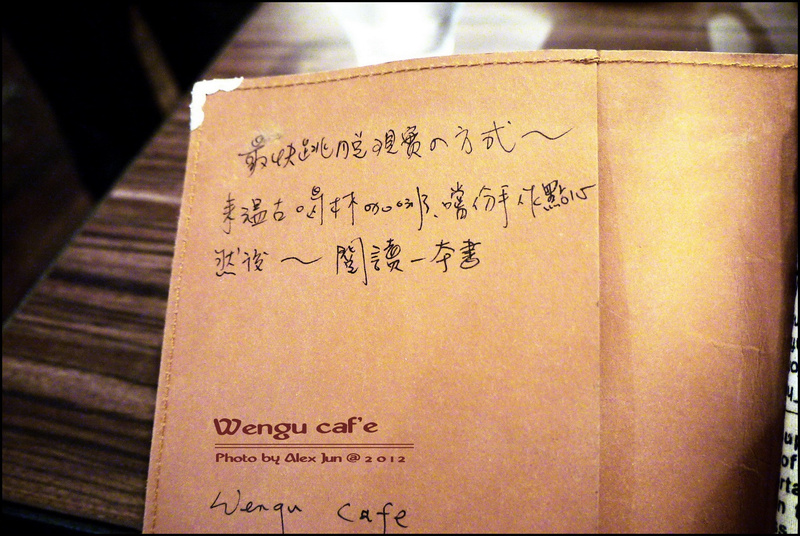 最快跳脫現實の方式～
來溫古喝杯咖啡、嚐份手作點心
然後～閱讀一本書
Wengu caf'e
Photo by Alex Jun @ 2012
Wengu Cafe